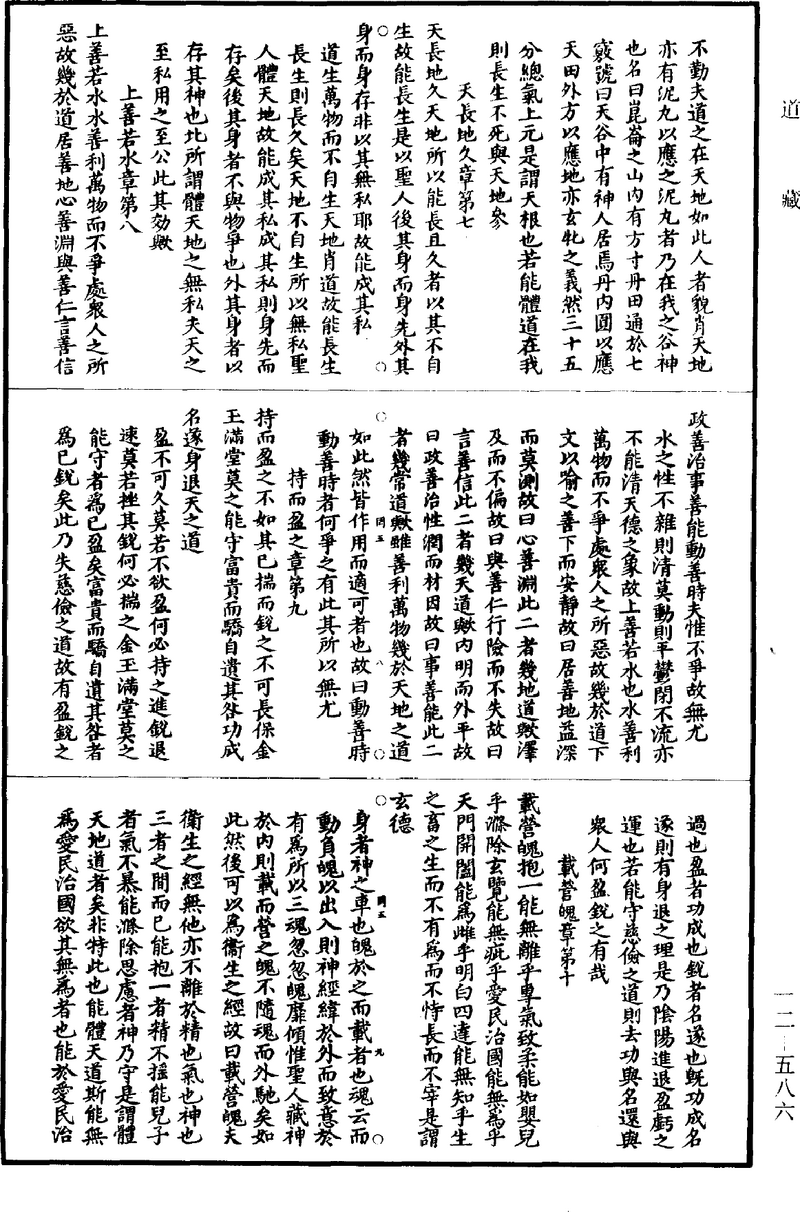 道藏
不勤夫道之在天地如此人者貌肖天地
亦有泥丸以應之泥丸者乃在我之谷神
也名曰崑崙之山内有方寸丹田通於七
竅號曰天谷中有神人居焉丹内圓以應
天田外方以應地亦玄牝之義然三十五
分總氣上元是謂天根也若能體道在我
則長生不死與天地參
天長地久章第七
天長地久天地所以能長且久者以其不自
生故能長生是以聖人後其身而身先外其
身而身存非以其無私耶故能成其私
道生萬物而不自生天地肖道故能長生
長生則長久矣天地不自生所以無私聖
人體天地故能成其私成其私則身先而
存矣後其身者不與物爭也外其身者以
存其神也此所謂體天地之無私夫天之
至私用之至公此其効歟
上善若水章第八
上善若水水善利萬物而不爭處衆人之所
惡故幾於道居善地心善淵與善仁言善信
政善治事善能動善時夫惟不爭故無尤
水之性不雜則清莫動則平鬱閉不流亦
不能清天德之象故上善若水也水善利
萬物而不爭處衆人之所惡故幾於道下
文以喻之善下而安靜故曰居善地益深
而莫測故曰心善淵此二者幾地道歟澤
及而不偏故曰與善仁行險而不失故曰
言善信此二者幾天道歟内明而外平故
曰政善治性濶而材因故曰事善能此二
者幾常道歟雖善利萬物幾於天地之道
如此然皆作用而適可者也故曰動善時
動善時者何爭之有此其所以無尤
持而盈之章第九
持而盈之不如其已揣而銳之不可長保金
玉滿堂莫之能守富貴而驕自遺其咎功成
名遂身退天之道
盈不可久莫若不欲盈何必持之進銳退
速莫若挫其銳何必揣之金玉滿堂莫之
能守者爲已盈矣富貴而驕自遺其咎者
爲已銳矣此乃失慈儉之道故有盈銳之
過也盈者功成也銳者名遂也既功成名
遂則有身退之理是乃陰陽進退盈虧之
運也若能守慈儉之道則去功與名還與
衆人何盈銳之有哉
載營魄章第十
載營魄抱一能無離乎專氣致柔能如嬰兒
乎滌除玄覽能無疵乎愛民治國能無爲乎
天門開闔能爲雌乎明白四達能無知乎生
之畜之生而不有爲而不恃長而不宰是謂
玄德
身者神之車也魄於之而載者也魂云而
動負魄以出入則神經緯於外而致意於
有爲所以三魂忽忽魄靡傾惟聖人藏神
於内則載而營之魄不隨魂而外馳矣如
此然後可以爲衞生之經故曰載營魄夫
衞生之經無他亦不離於精也氣也神也
三者之間而已能抱一者精不搖能兒子
者氣不暴能滌除思慮者神乃守是謂體
天地道者矣非特此也能體天道斯能無
爲愛民治國欲其無爲者也能於愛民治
一二—五八六